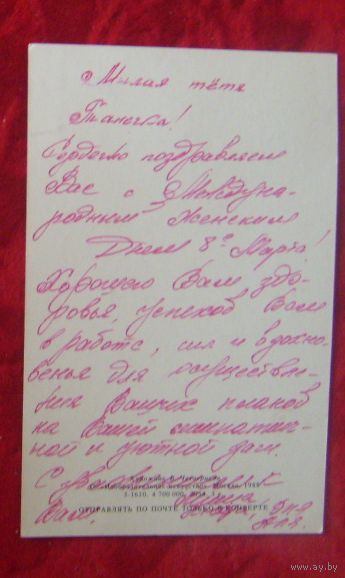 Милая тётя
Танечка!
Сердечно поздравляем
Вас с Междуна-
родным Женским
Днем 8го Марта!
Хорошего Вам здо-
ровья, успехов Вам
в работе, сил и вдохно-
венья для осуществле-
ния Ваших планов
на Вашей симпатич-
ной и уютной даче.
С
Художник
Изобразительное искусство. Москва. 1988
5-1610. 4 700 000.
Вам.
ОТПРАВЛЯТЬ ПО ПОЧТЕ ТОЛЬКО В КОНВЕРТЕ
www.ay.by